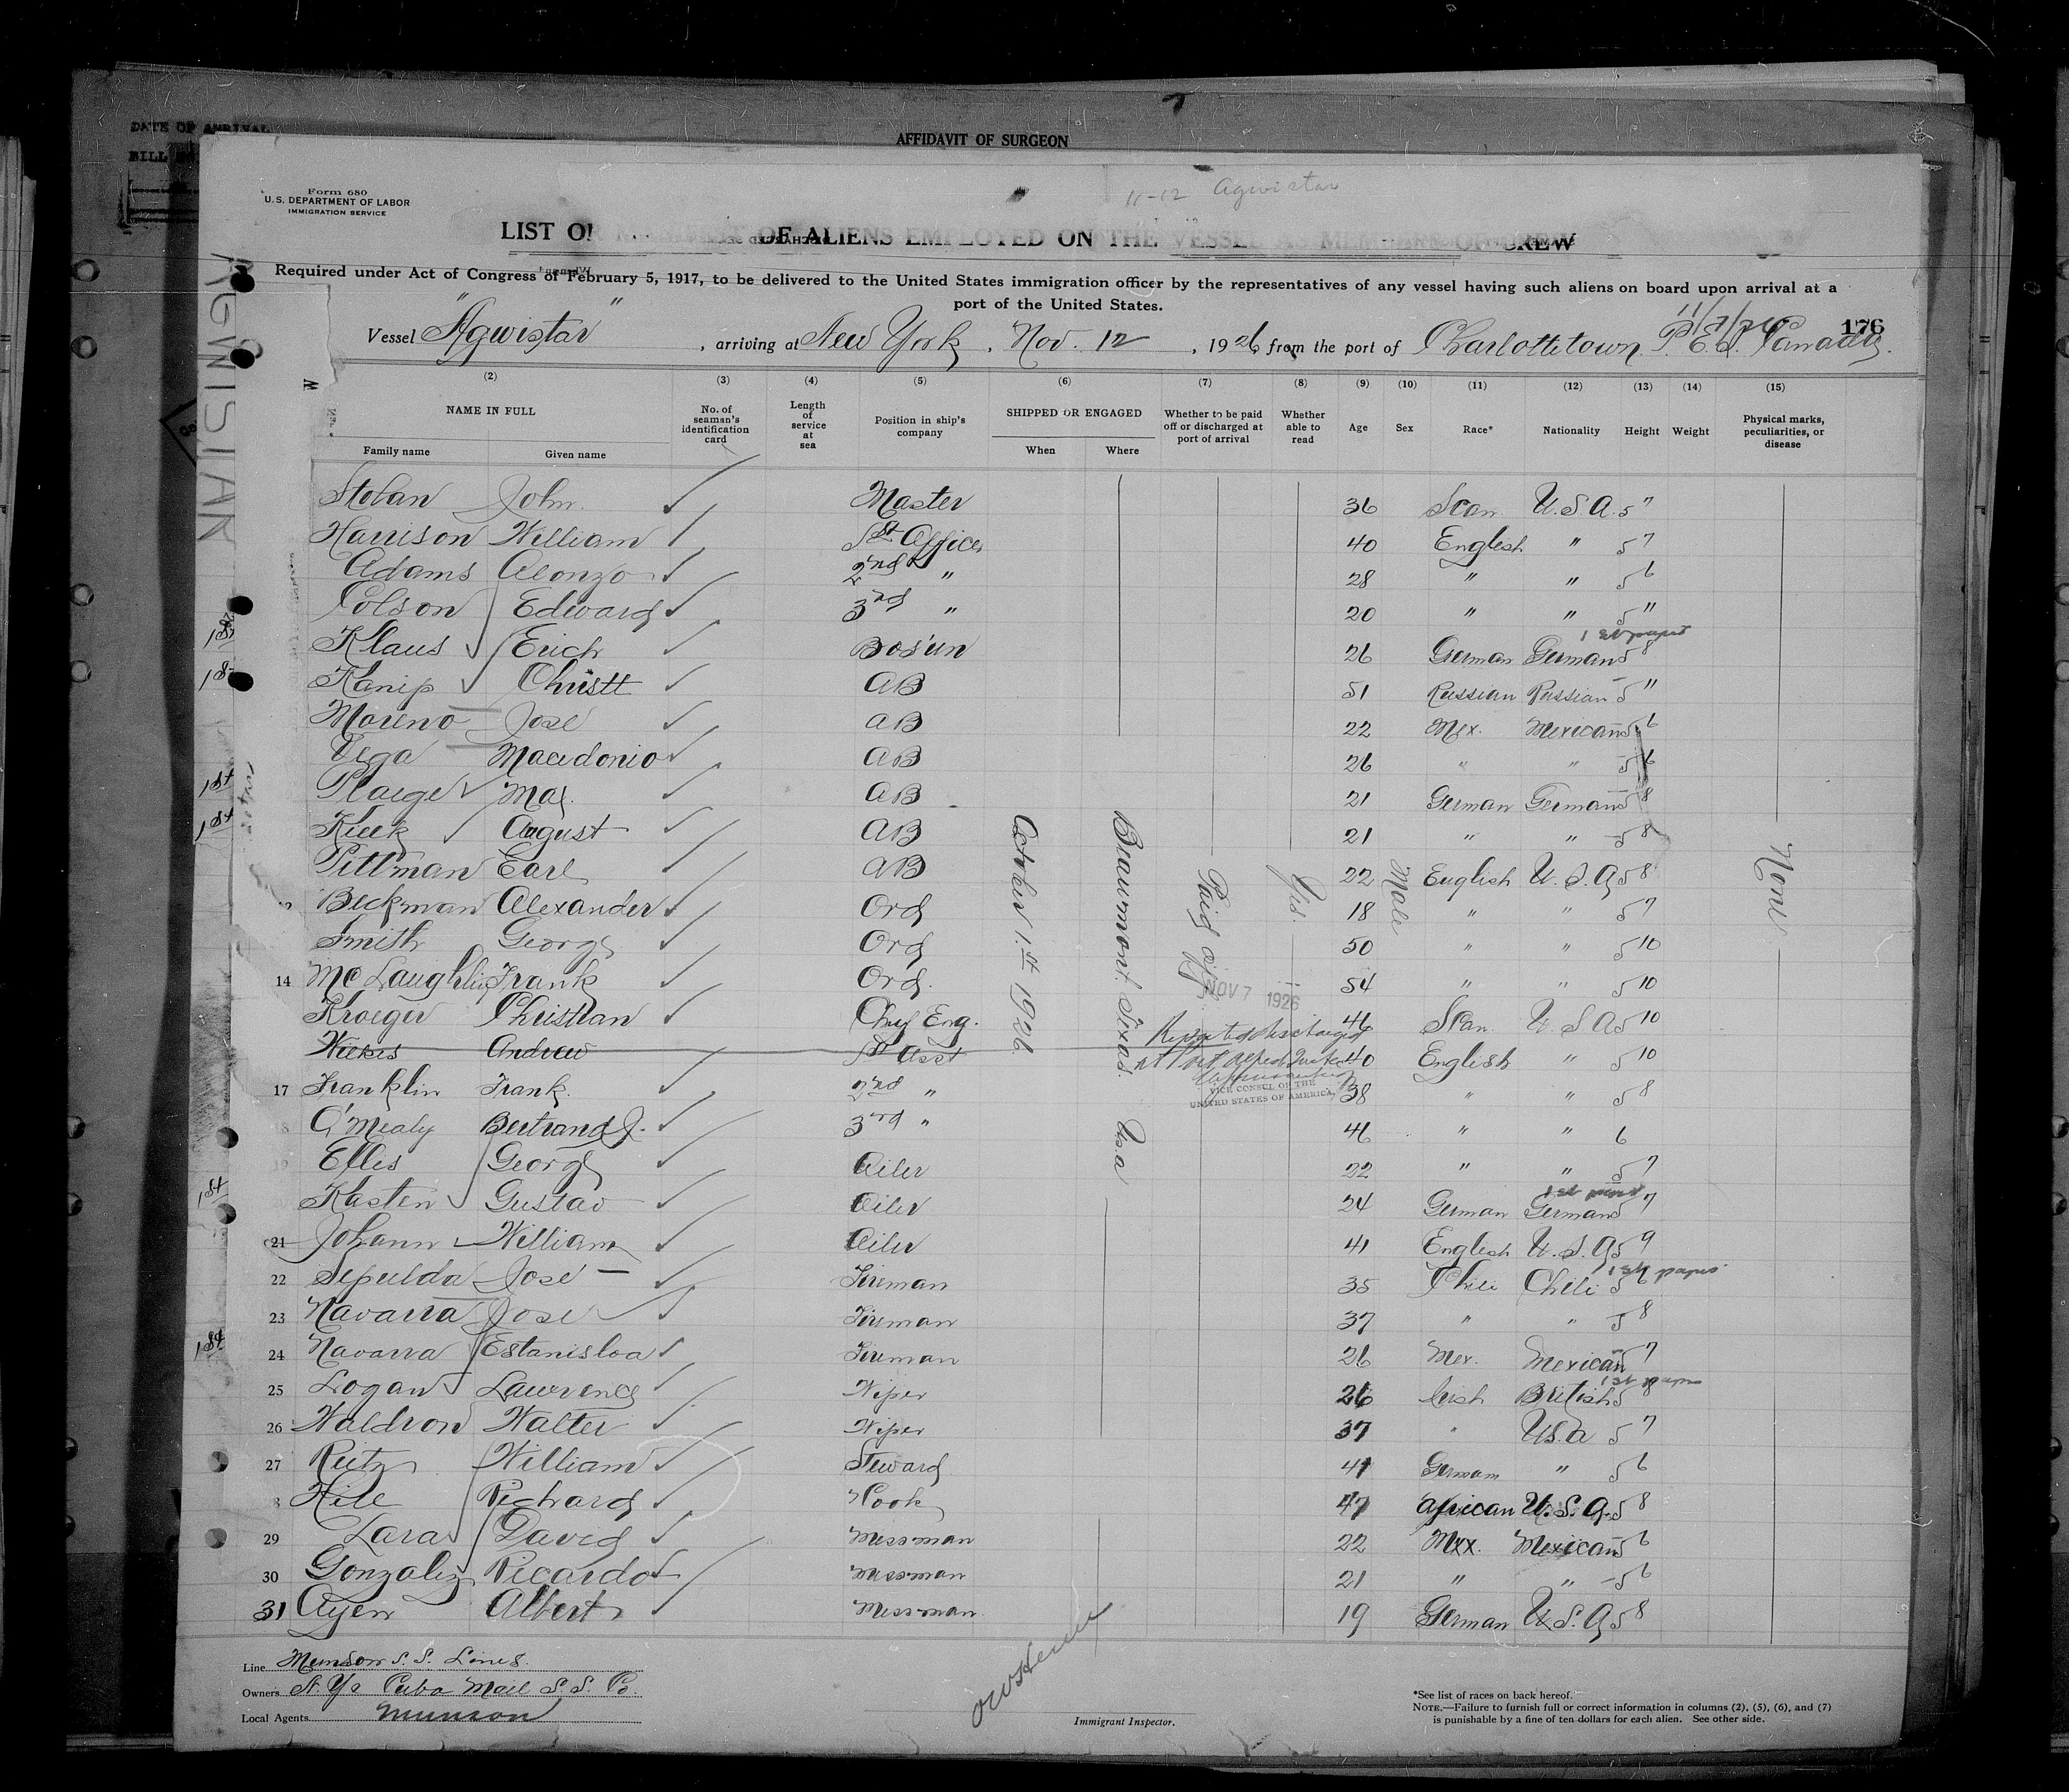 AFFIDAVIT OF SURGEON
DATE OF ARRIVAL
BILL
Form 680
U.S. DEPARTMENT OF LABOR
IMMIGRATION SERVICE
11-12 Agwistar
LIST OF OF ALIENS EMPLOYED ON THE VESSEL AS MEMBERS OF CREW
Required under Act of Congress of February 5, 1917, to be delivered to the United States immigration officer by the representatives of any vessel having such aliens on board upon arrival at a
port of the United States.
AGWISTAR
11/7/26 176
Vessel "Agwistar", arriving at New York, Nov. 12, 1926, from the port of Charlottetown P.E.I. Canada.
(2) (3) (4) (5) (6) (7) (8) (9) (10) (11) (12) (13) (14) (15)
NAME IN FULL
Family name Given name
No. of seaman's identification card
Length of service at sea
Position in ship's company
SHIPPED OR ENGAGED
When Where
Whether to be paid off or discharged at port of arrival
Whether able to read
Age Sex Race* Nationality Height Weight
Physical marks, peculiarities, or disease
John Master 36 Scan. U.S.A. 5 7
Harrison William 1st Officer 40 English " 5 7
Adams Alonzo 2nd " 28 " " 5 6
Colson Edward 3rd " 20 " " 5 "
1st papers
1st Klaus Erich Bos'un 26 German German 5 8
1st Kanip Christt AB 51 Russian Russian 5 "
Moreno Jose AB 22 Mex. Mexican 5 6
Vega Macedonio AB 26 " " 5 6
1st Max AB 21 German German 5 8
1st August AB 21 " " 5 8
Pittman Earl AB 22 English U.S.A. 5 8
Beckman Alexander Ord 18 " " 5 7
Smith George Ord 50 " " 5 10
14 McLaughlin Frank Ord. 54 " " 5 10
Kroeger Christian Chief Eng. 46 Scan. U.S.A. 5 10
Andrew 1st Asst 40 English " 5 10
17 Franklin Frank 2nd " 38 " " 5 8
18 O'Mealy Bertrand J. 3rd " 46 " " 6
19 Ellis George Oiler 22 " " 5 7
1st papers
1st Kasten Gustav Oiler 24 German German 5 7
21 Johann William Oiler 41 English U.S.A. 5 9
1st papers
22 Sepulda Jose Fireman 35 Chili Chili 5
23 Navarra Jose Fireman 37 " " 5 8
1st 24 Navarra Estanisloa Fireman 26 Mex. Mexican 5 7
1st papers
25 Logan Lawrence Wiper 26 Irish British 5 8
26 Waldron Walter Wiper 37 " U.S.A 5 7
27 Rutz William Steward 41 German " 5 6
8 Hill Richard Cook 47 African U.S.A. 5 8
29 Lara David Messman 22 Mex. Mexican 5 6
30 Gonzalez Ricardo Messman 21 " " 5 6
31 Ayen Albert Messman 19 German U.S.A. 5 8
October 1st 1926
Beaumont Texas. U.S.A
Paid off
Yes.
Male
None
NOV 7 1926
Reported discharged
at Port Alfred Quebec
VICE CONSUL OF THE
UNITED STATES OF AMERICA
Line Munson S.S. Lines
Owners N.Y. & Cuba Mail S.S. Co.
Local Agents Munson
Immigrant Inspector.
*See list of races on back hereof.
NOTE.—Failure to furnish full or correct information in columns (2), (5), (6), and (7)
is punishable by a fine of ten dollars for each alien. See other side.